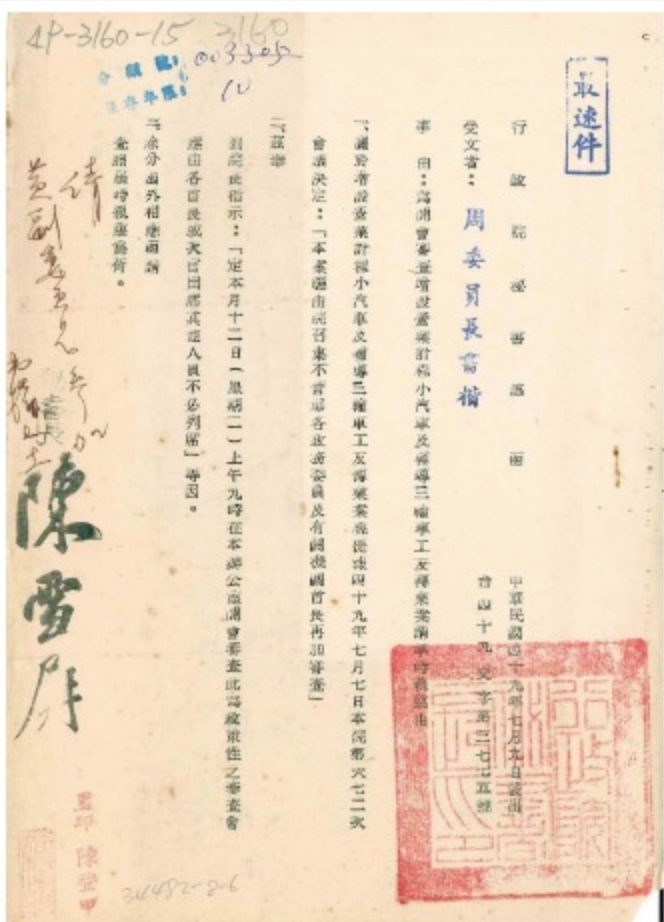 4P-3160-15
3160
分類號：003305
保存年限：10
最速件
行政院秘書處函
中華民國四十九年七月九日發出
台四十九 交字第三七七五號
受文者：周委員長書楷
事由：為開會審查增設營業計程小汽車及輔導三輪車工友轉業案請準時親臨由
一、關於增設營業計程小汽車及輔導三輪車工友轉業案業經提出四十九年七月七日本院第六七二次
會議決定：「本案應由院召集不管部各政務委員及有關機關首長再加審查」
二、茲奉
副院長指示：「定本月十二日（星期二）上午九時在本辦公室開會審查此為政策性之審查會
應由各首長或次官出席其他人員不必列席」等因。
三、除分函外相應函請
查照屆時親臨為荷。
請
黃副委員長參加
陳雪屏
監印 陳登甲
34482-8-6